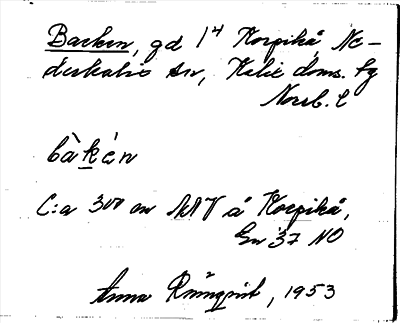 Backen, gd 1⁴ Korpikå, Ne-
derkalix sn, Kalix doms. lg
Norrb. l
bàkén
C:a 300 m NNV å Korpikå,
Gn 37 NO
Anna Rönnqvist, 1953